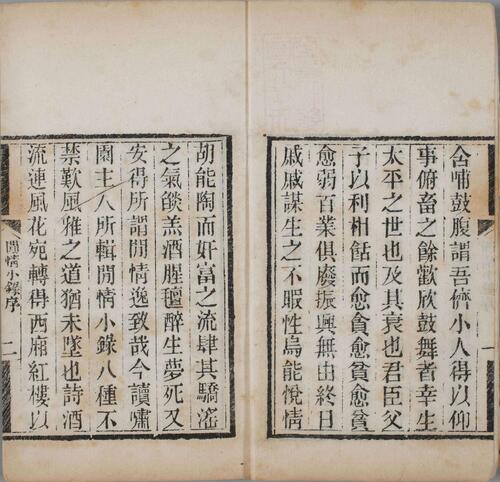 含哺鼓腹謂吾儕小人得以仰
事俯畜之餘歡欣鼓舞者幸生
太平之世也及其衰也君臣父
子以利相餂而愈貧愈貧愈貧
愈弱百業俱廢振興無由終日
戚戚謀生之不暇性烏能悅情
胡能陶而奸富之流肆其驕滛
之氣餤羔酒腥羶醉生夢死又
安得所謂閒情逸致哉今讀嘯
園主人所輯閒情小錄八種不
禁歎風雅之道猶未墜也詩酒
流連風花宛轉得西廂紅樓以
閒情小錄序
二
一